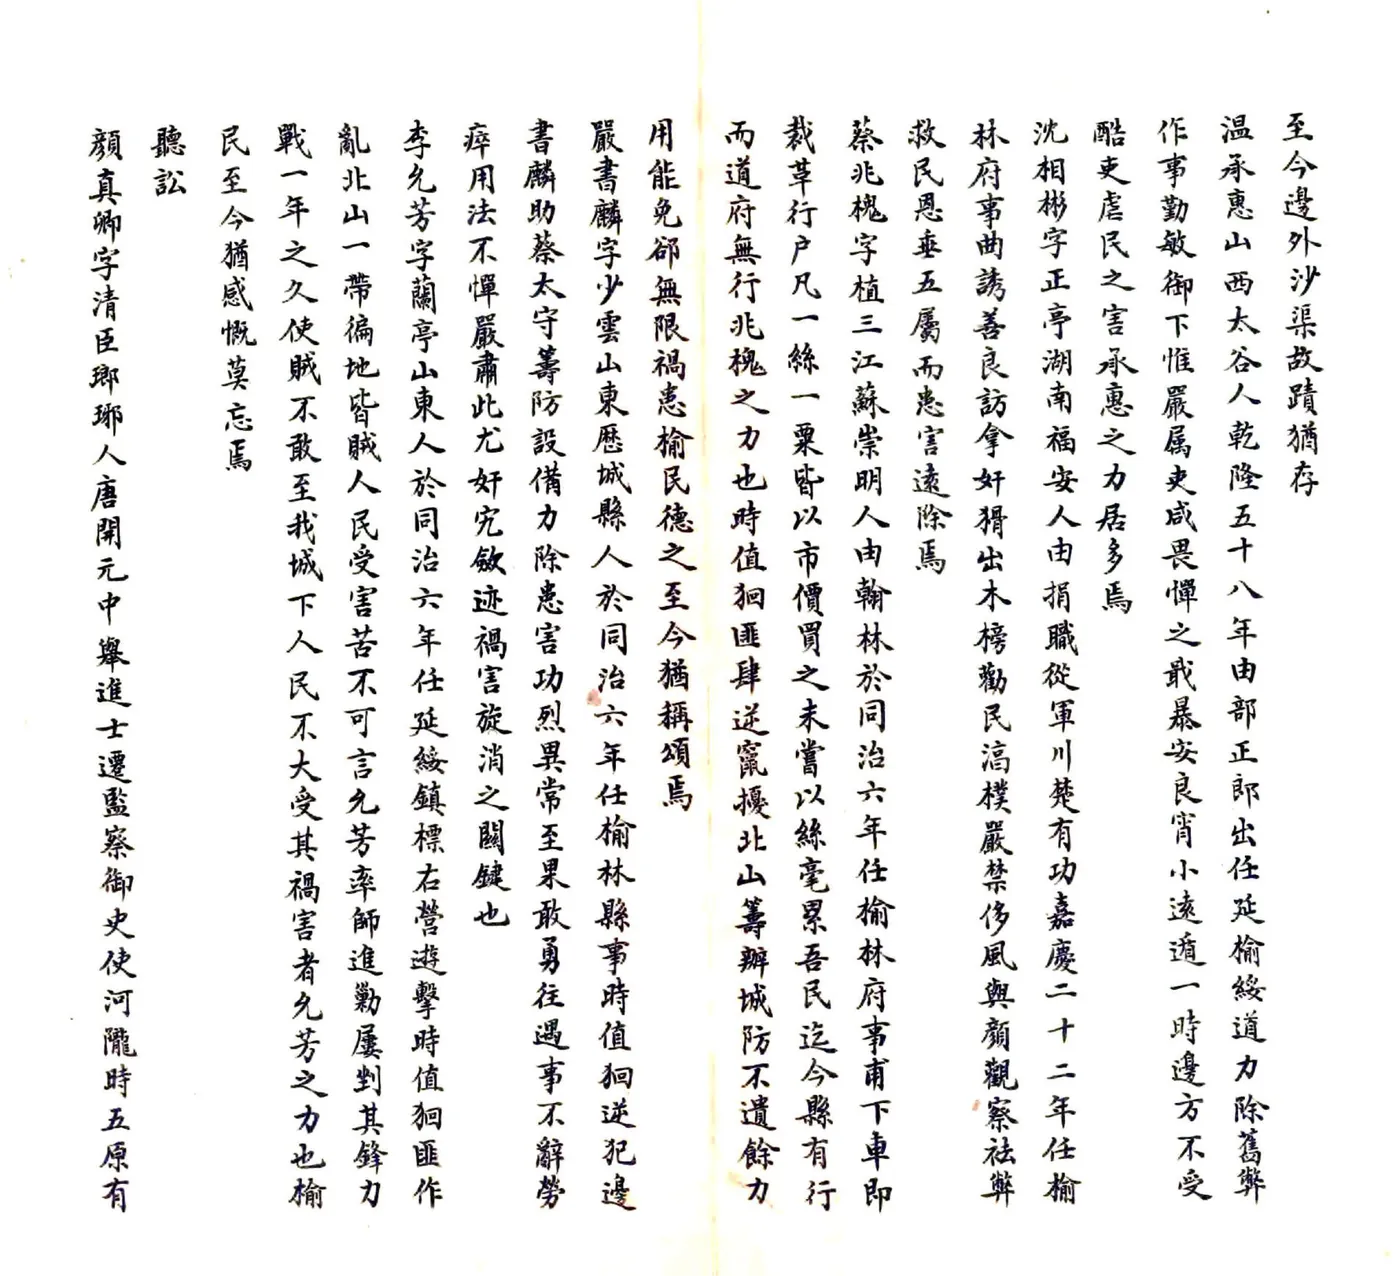 至今邊外沙渠故蹟猶存
温承惠山西太谷人乾隆五十八年由部正郎出任延榆綏道力除舊弊
作事勤敏御下惟嚴属吏咸畏憚之戢暴安良宵小遠遁一時邊方不受
酷吏虐民之害承惠之力居多焉
沈相彬字正亭湖南福安人由捐職從軍川楚有功嘉慶二十二年任榆
林府事曲誘善良訪拿奸猾出木榜勸民滈樸嚴禁侈風與顔觀察祛弊
救民恩垂五屬而患害遠除焉
蔡兆槐字植三江蘇崇明人由翰林於同治六年任榆林府事甫下車即
裁草行户凡一絲一粟皆以市價買之未嘗以絲毫累吾民迄今縣有行
而道府無行兆槐之力也時值狪匪肆逆竄擾北山籌辦城防不遺餘力
用能免郤無限禍患榆民德之至今猶稱頌焉
嚴書麟字少雲山東歷城縣人於同治六年任榆林縣事時值狪逆犯邊
書麟助蔡太守籌防設備力除患害功烈異常至果敢勇往遇事不辭勞
瘁用法不憚嚴肅此尤奸宄斂迹禍害旋消之關鍵也
李允芳字蘭亭山東人於同治六年任延綏鎮標右營遊擊時值狪匪作
亂北山一帶徧地皆賊人民受害苦不可言允芳率師進勦屢剉其鋒力
戰一年之久使賊不敢至我城下人民不大受其禍害者允芳之力也榆
民至今猶感慨莫忘焉
聽訟
顔真卿字清臣瑯琊人唐開元中舉進士遷監察御史使河隴時五原有